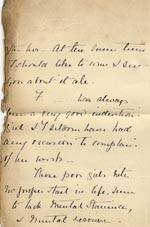 for her. At the same time
I should like to come & see
you about it all.
F has always
been a very good
and I seldom have had
any occasion to complain
of her work.
These poor girls
no proper start in life, seem
to lack mental stamina,
& mental